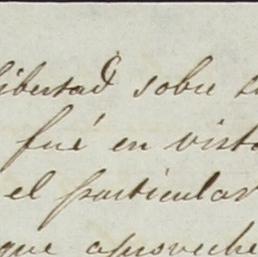 libertad sobre
fué en vista
el particular
que aproveche